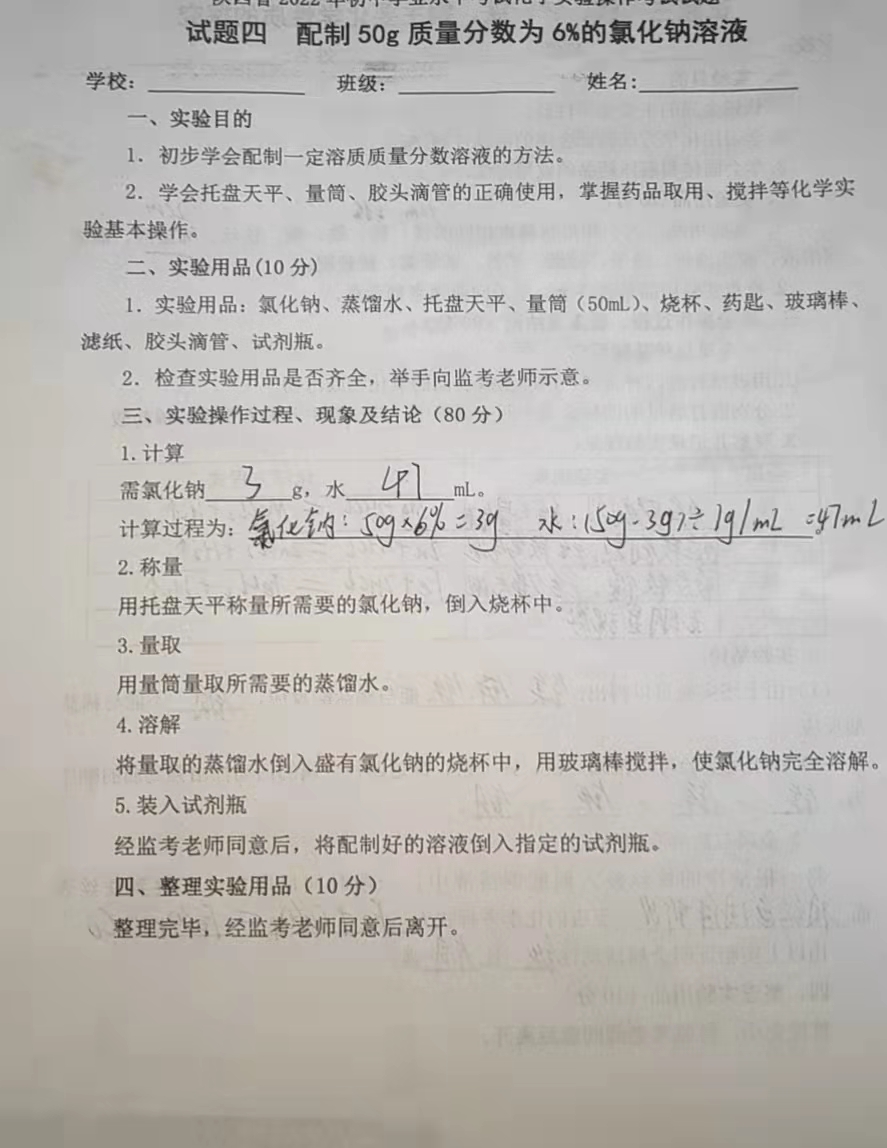 试题四 配制 50g 质量分数为 6%的氯化钠溶液
学校： 班级： 姓名：
一、实验目的
1. 初步学会配制一定溶质质量分数溶液的方法。
2. 学会托盘天平、量筒、胶头滴管的正确使用，掌握药品取用、搅拌等化学实
验基本操作。
二、实验用品(10 分)
1. 实验用品：氯化钠、蒸馏水、托盘天平、量筒（50mL）、烧杯、药匙、玻璃棒、
滤纸、胶头滴管、试剂瓶。
2. 检查实验用品是否齐全，举手向监考老师示意。
三、实验操作过程、现象及结论（80 分）
1.计算
需氯化钠 3 g，水 47 mL。
计算过程为：氯化钠：50g×6%=3g 水：(50g-3g)÷1g/mL =47mL
2.称量
用托盘天平称量所需要的氯化钠，倒入烧杯中。
3.量取
用量筒量取所需要的蒸馏水。
4.溶解
将量取的蒸馏水倒入盛有氯化钠的烧杯中，用玻璃棒搅拌，使氯化钠完全溶解。
5.装入试剂瓶
经监考老师同意后，将配制好的溶液倒入指定的试剂瓶。
四、整理实验用品（10 分）
整理完毕，经监考老师同意后离开。